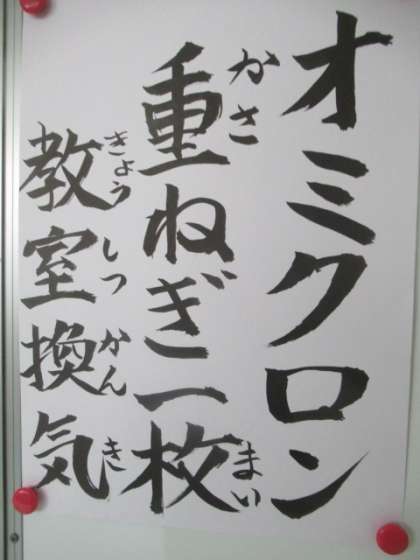 オミクロン
重ねぎ一枚
かさ
まい
教室換気
きょう
しつ
かん
き